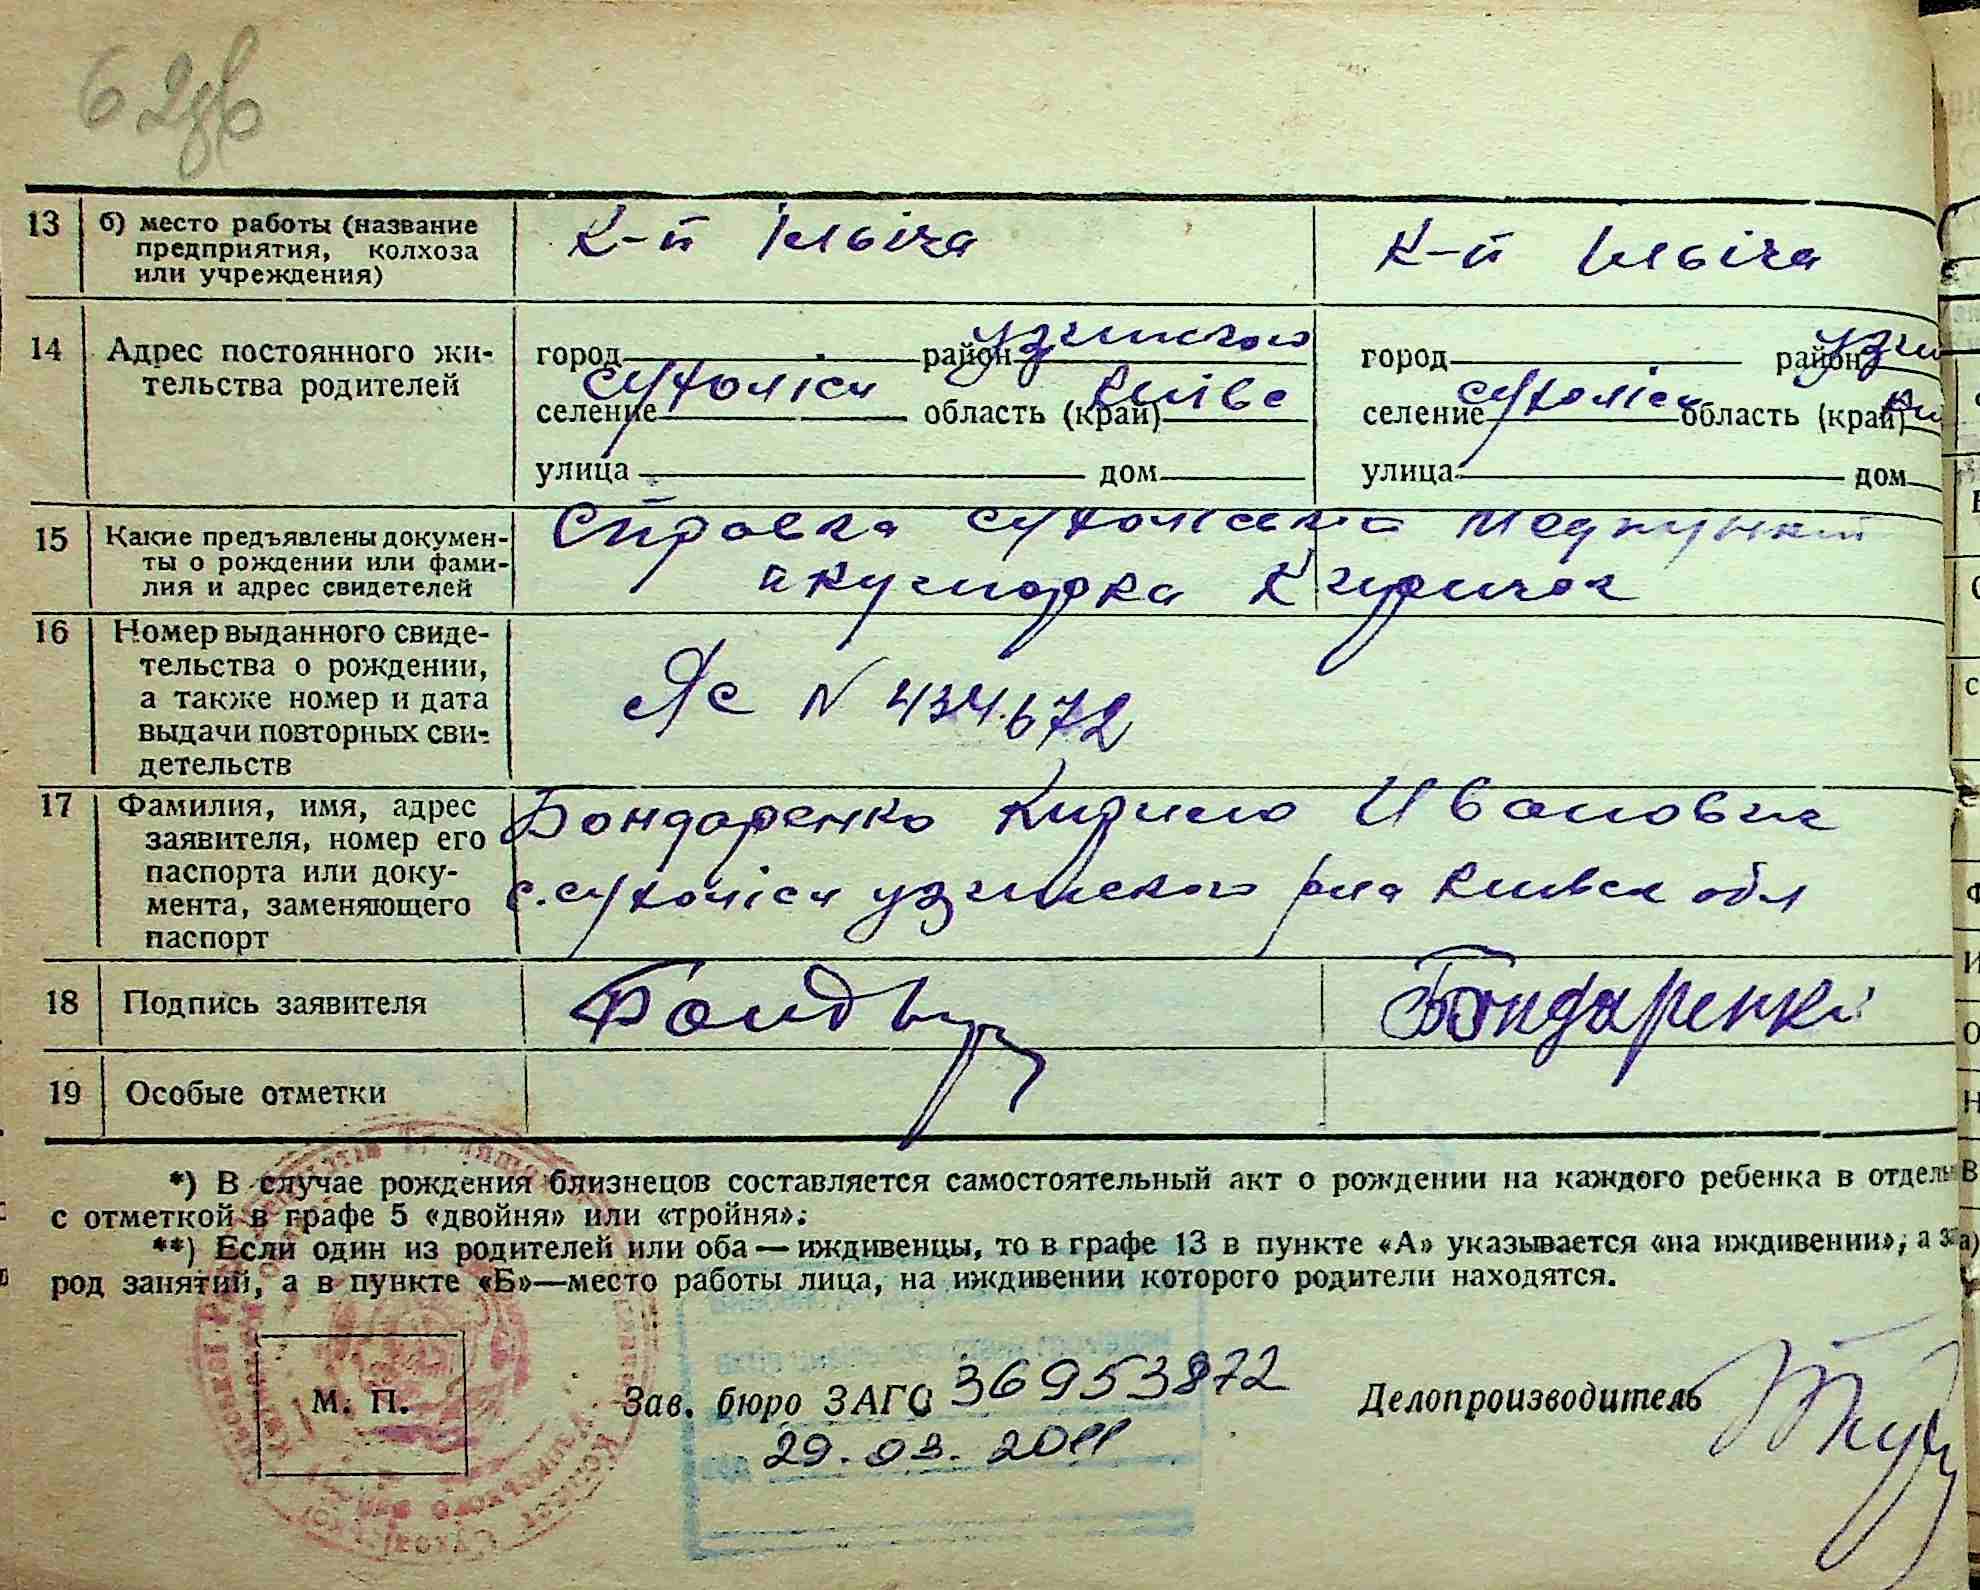 62зв
13 б) место работы (название предприятия, колхоза или учреждения)
К-п Ілліча К-п Ілліча
14 Адрес постоянного жительства родителей
город район узинского город район узи
селение сухоліси область (край) Київс селение сухоліси область (край) Ки
улица дом улица дом
15 Какие предъявлены документы о рождении или фамилия и адрес свидетелей
Справка сухоліська медпункт
акушорка Киричок
16 Номер выданного свидетельства о рождении, а также номер и дата выдачи повторных свидетельств
ЯС N 434672
17 Фамилия, имя, адрес заявителя, номер его паспорта или документа, заменяющего паспорт
Бондаренко Кирило Иванович
с. сухоліси узинского р-на Киевск обл
18 Подпись заявителя
Бондар Бондаренко
19 Особые отметки
*) В случае рождения близнецов составляется самостоятельный акт о рождении на каждого ребенка в отдель
с отметкой в графе 5 «двойня» или «тройня».
**) Если один из родителей или оба — иждивенцы, то в графе 13 в пункте «А» указывается «на иждивении», а
род занятий, а в пункте «Б»—место работы лица, на иждивении которого родители находятся.
М. П.
Зав. бюро ЗАГС 36953872 Делопроизводитель
29.03.2011